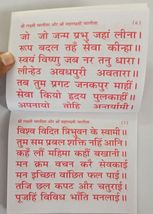 श्री लक्ष्मी चालीसा और श्री महालक्ष्मी चालीसा
जो जो जन्म प्रभु जहां लीना।
रूप बदल तहँ सेवा कीन्हा॥
स्वयं विष्णु जब नर तनु धारा।
लीन्हेउ अवधपुरी अवतारा॥
तब तुम प्रगट जनकपुर माहीं।
सेवा कियो हृदय पुलकाहीं॥
अपनायो तोहि अन्तर्यामी।
श्री लक्ष्मी चालीसा और श्री महालक्ष्मी चालीसा
विश्व विदित त्रिभुवन के स्वामी॥
तुम सम प्रबल शक्ति नहिं आनि।
कहँ लौं महिमा कहौं बखानी॥
मन क्रम वचन करै सेवकाई
मन इच्छित वांछित फल पाई॥
तजि छल कपट और चतुराई।
पूजहिं विविध भाँति मनलाई॥